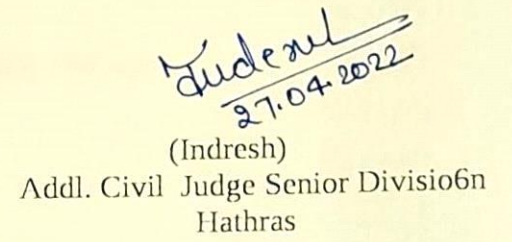 Indresh
27.04.2022
(Indresh)
Addl. Civil Judge Senior Divisio6n
Hathras